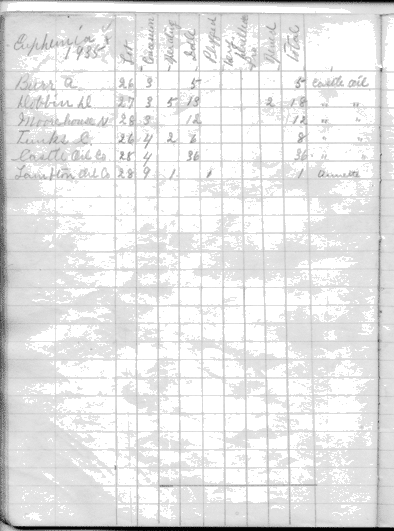 Euphemia 1935 Lot Concession Operating Sold Total
Burr A 26 3 5 5 Castle Oil
Dobbin D 27 3 5 13 2 18 " "
Moorehouse N 28 3 12 12 " "
C. 26 4 2 6 8 " "
Castle Oil Co 28 4 36 36 " "
Oil Co 28 9 1 1 1